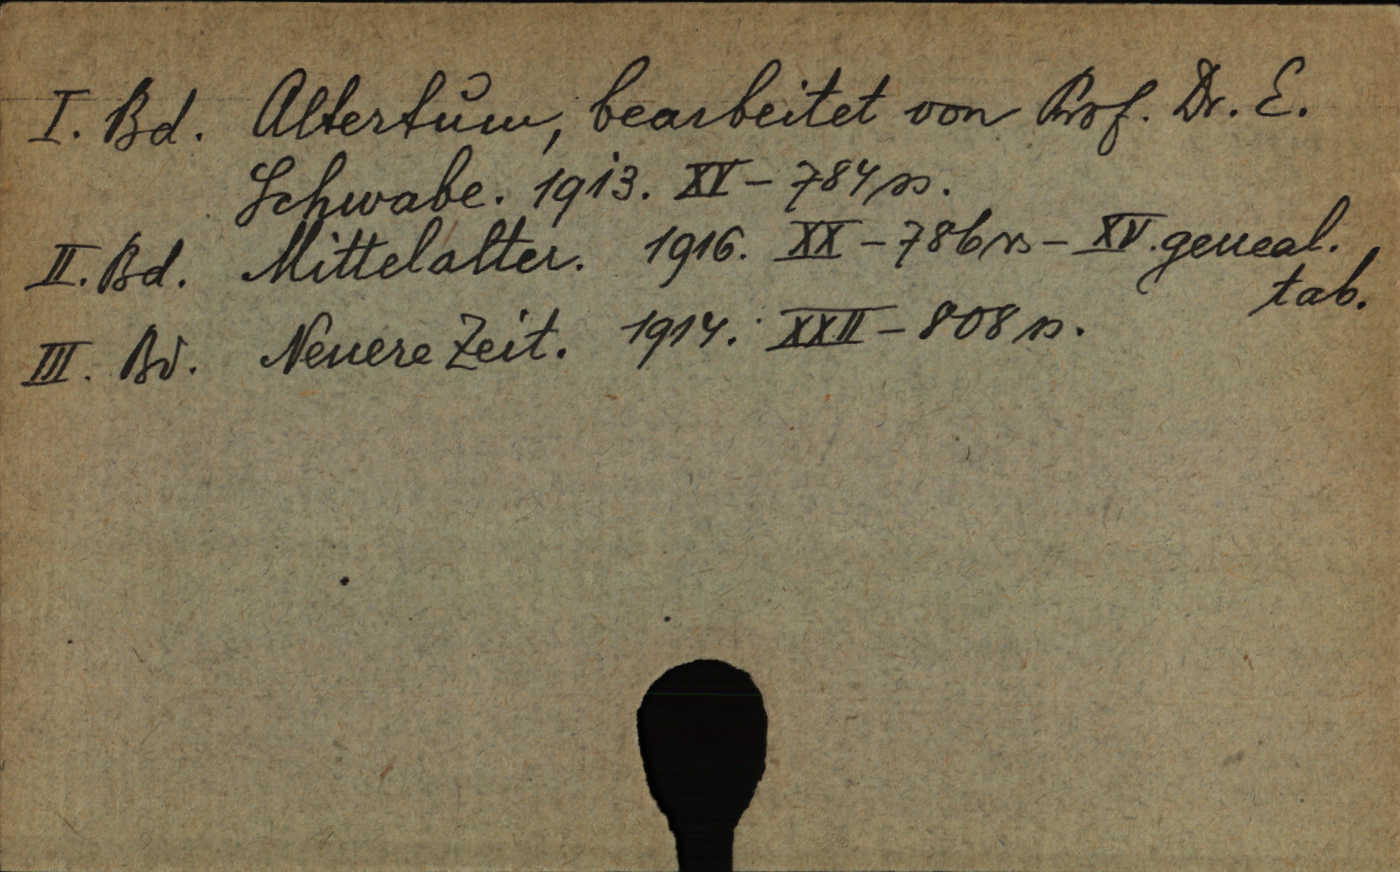 I. Bd. Altertum, bearbeitet von Prof. Dr. E.
Schwabe. 1913. XV – 784 s.
II. Bd. Mittelalter. 1916. XX – 786 s – XV. geneal.
tab.
III. Bd. Neuere Zeit. 1914. XXII – 808 s.